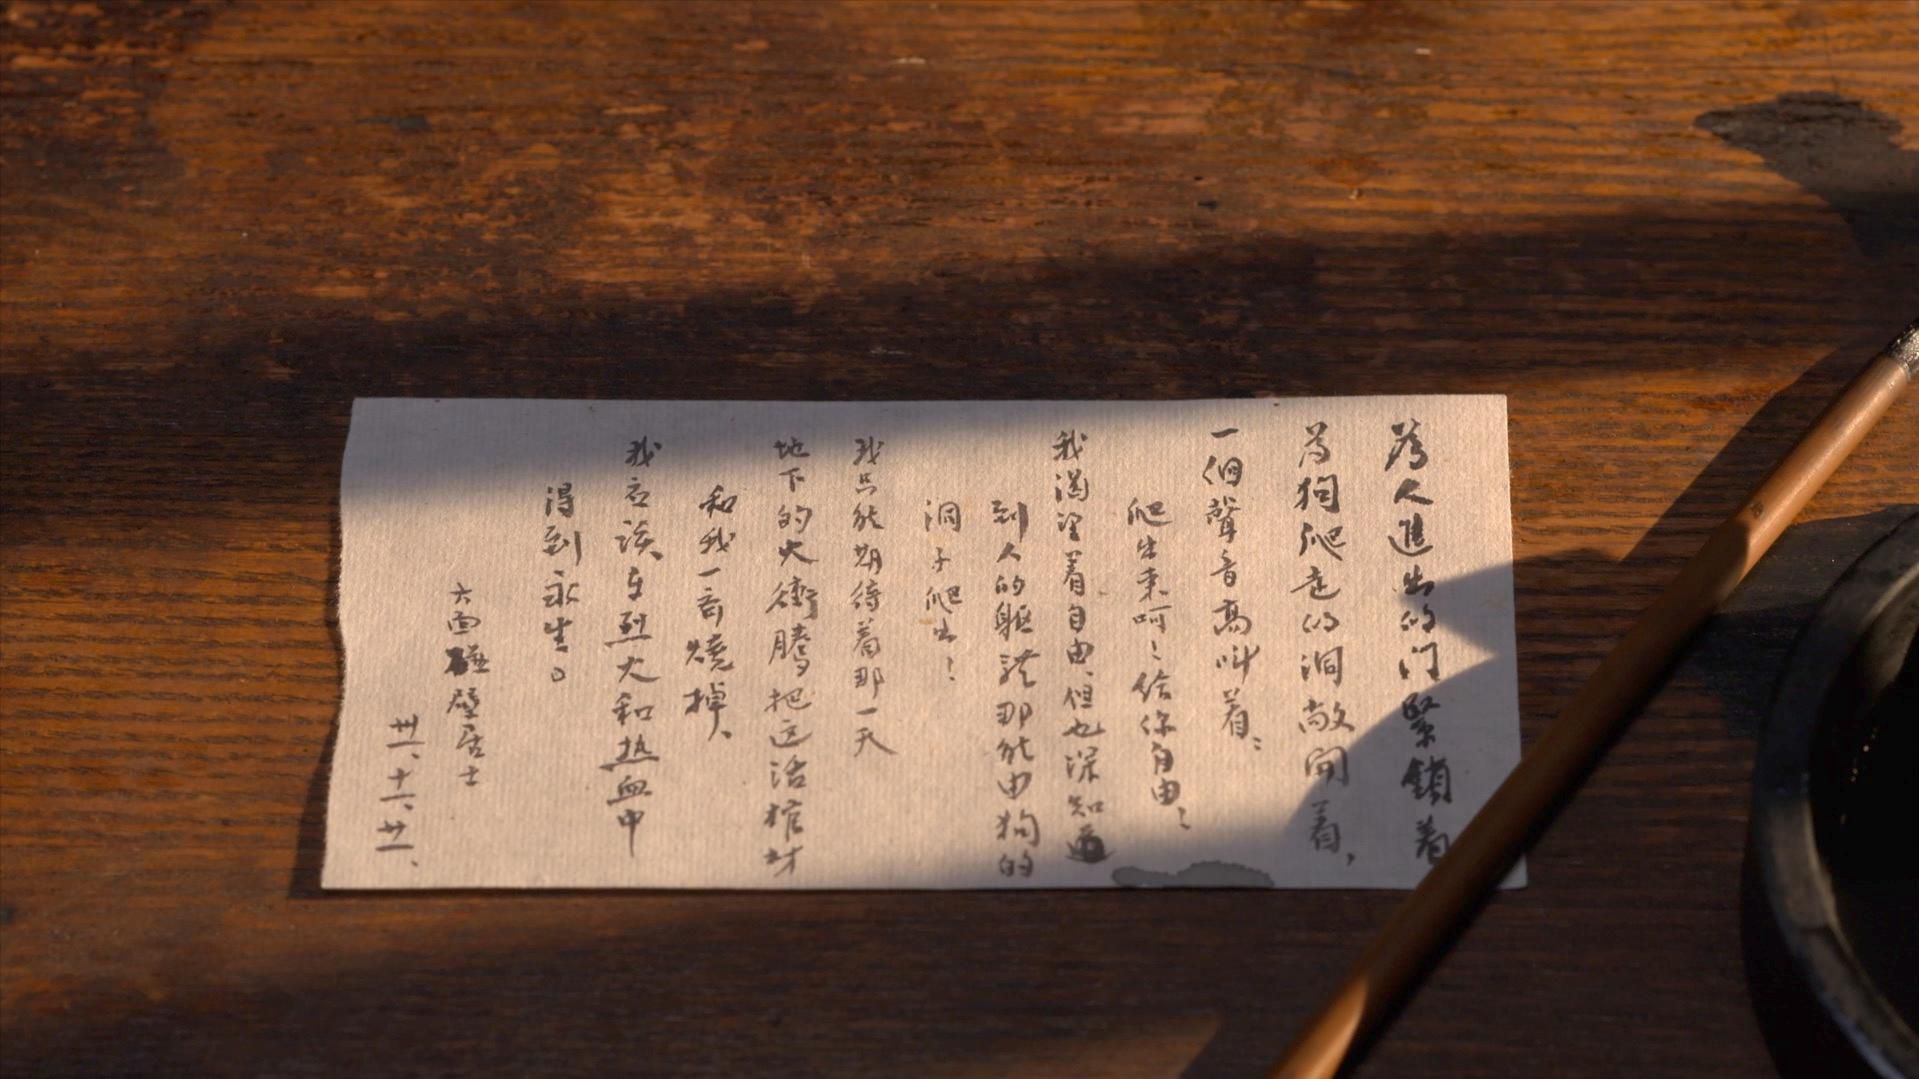 為人進出的门緊鎖着
为狗爬走的洞敞開着，
一個聲音高叫着：
爬出来呵！给你自由！
我渴望着自由，但也深知道
到人的軀体那能由狗的
洞子爬出！
我只能期待着那一天
地下的火衝腾把这活棺材
和我一齐燒掉、
我应该在烈火和热血中
得到永生。
六面碰壁居士
卅一、十一、廿一、